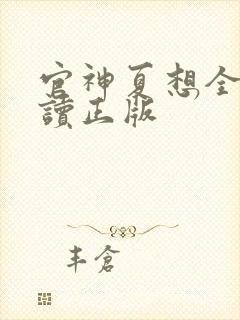 官神夏想全
讀正版
丰倉